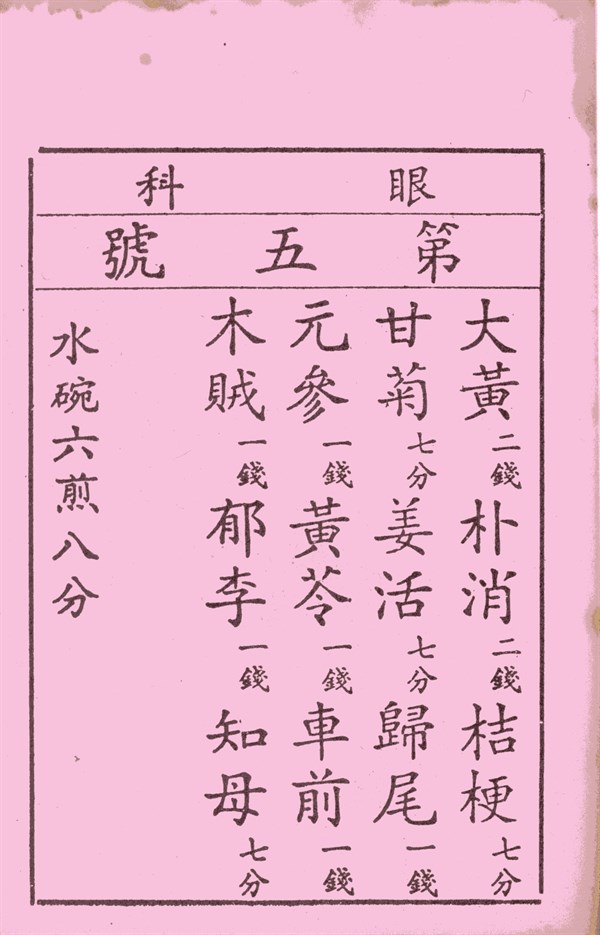 眼科
第五號
大黃二錢朴消二錢桔梗七分
甘菊七分姜活七分歸尾一錢
元參一錢黃芩一錢車前一錢
木賊一錢郁李一錢知母七分
水碗六煎八分